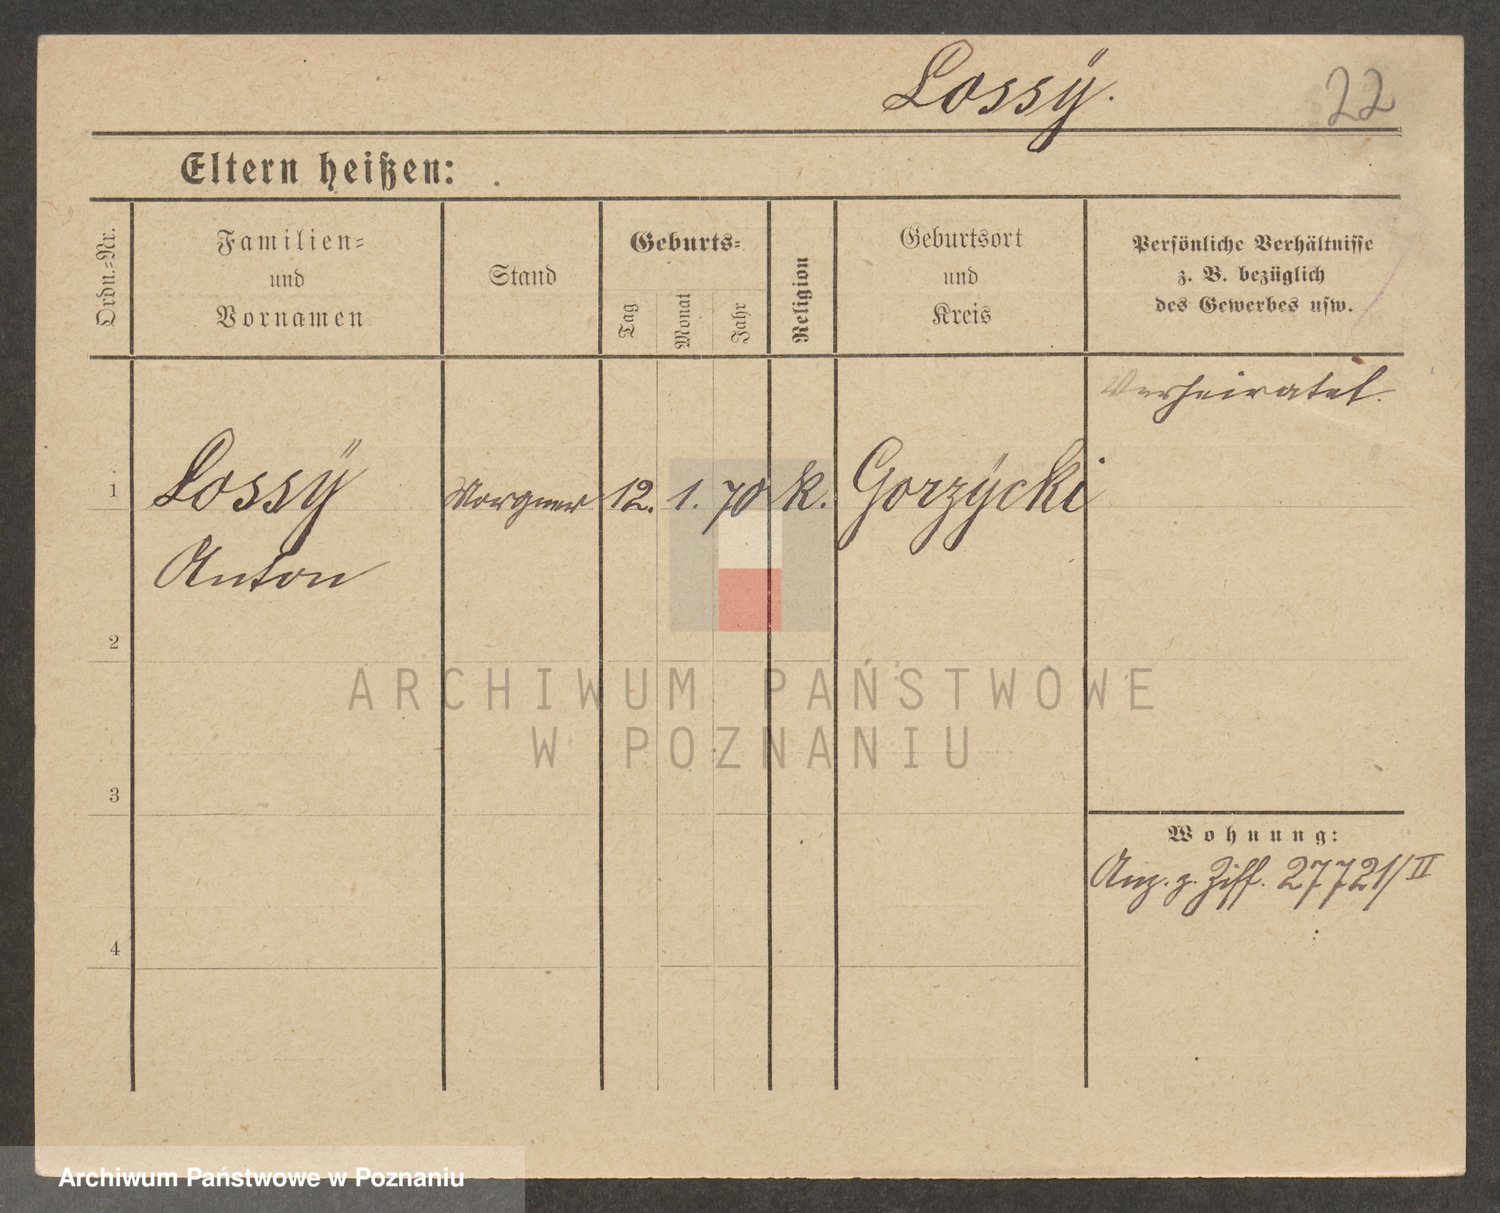 Lossÿ.
22
Eltern heißen:
Ordn.-Nr.
Familien-
und
Vornamen
Stand
Geburts-
Tag
Monat
Jahr
Religion
Geburtsort
und
Kreis
Persönliche Verhältnisse
z. B. bezüglich
des Gewerbes usw.
Verheiratet.
1 Lossÿ 12. 1. 70 k. Gorzÿcki
Anton
2
3
4
Wohnung:
Anz. z. Ziff. 27721/II
ARCHIWUM PAŃSTWOWE
W POZNANIU
Archiwum Państwowe w Poznaniu